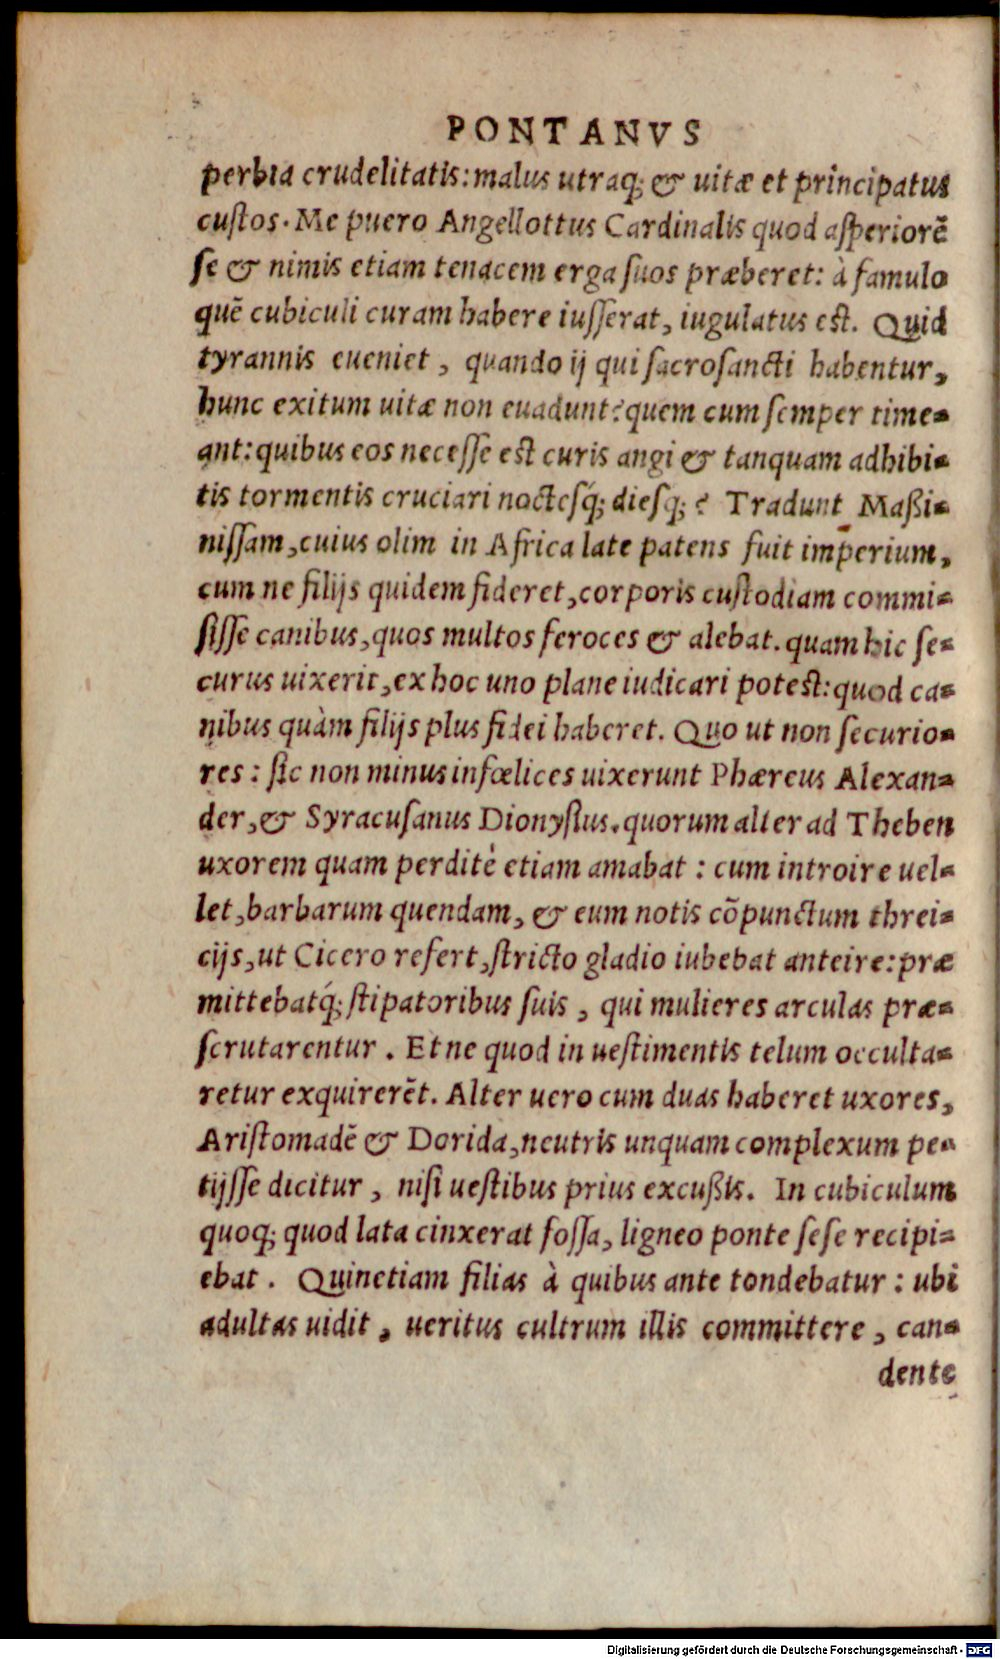 PONTANVS
perbia crudelitatis: malus utraq; & uitæ et principatus
custos. Me puero Angellottus Cardinalis quod asperiorẽ
se & nimis etiam tenacem erga suos præberet: à famulo
quẽ cubiculi curam habere iusserat, iugulatus est. Quid
tyrannis eueniet, quando ij qui sacrosancti habentur,
hunc exitum uitæ non euadunt? quem cum semper time-
ant: quibus eos necesse est curis angi & tanquam adhibi-
tis tormentis cruciari noctesq́; diesq;? Tradunt Maßi-
nissam, cuius olim in Africa late patens fuit imperium,
cum ne filijs quidem fideret, corporis custodiam commi-
sisse canibus, quos multos feroces & alebat. quam hic se-
curus uixerit, ex hoc uno plane iudicari potest: quod ca-
nibus quàm filijs plus fidei haberet. Quo ut non securio-
res: sic non minus infœlices uixerunt Phæreus Alexan-
der, & Syracusanus Dionysius. quorum alter ad Theben
uxorem quam perditè etiam amabat: cum introire uel-
let, barbarum quendam, & eum notis cõpunctum threi-
cijs, ut Cicero refert, stricto gladio iubebat anteire: præ
mittebatq́; stipatoribus suis, qui mulieres arculas præ-
scrutarentur. Et ne quod in uestimentis telum occulta-
retur exquirerẽt. Alter uero cum duas haberet uxores,
Aristomadẽ & Dorida, neutris unquam complexum pe-
tijsse dicitur, nisi uestibus prius excußis. In cubiculum
quoq; quod lata cinxerat fossa, ligneo ponte sese recipi-
ebat. Quinetiam filias à quibus ante tondebatur: ubi
adultas uidit, ueritus cultrum illis committere, can-
dente
Digitalisierung gefördert durch die Deutsche Forschungsgemeinschaft - DFG